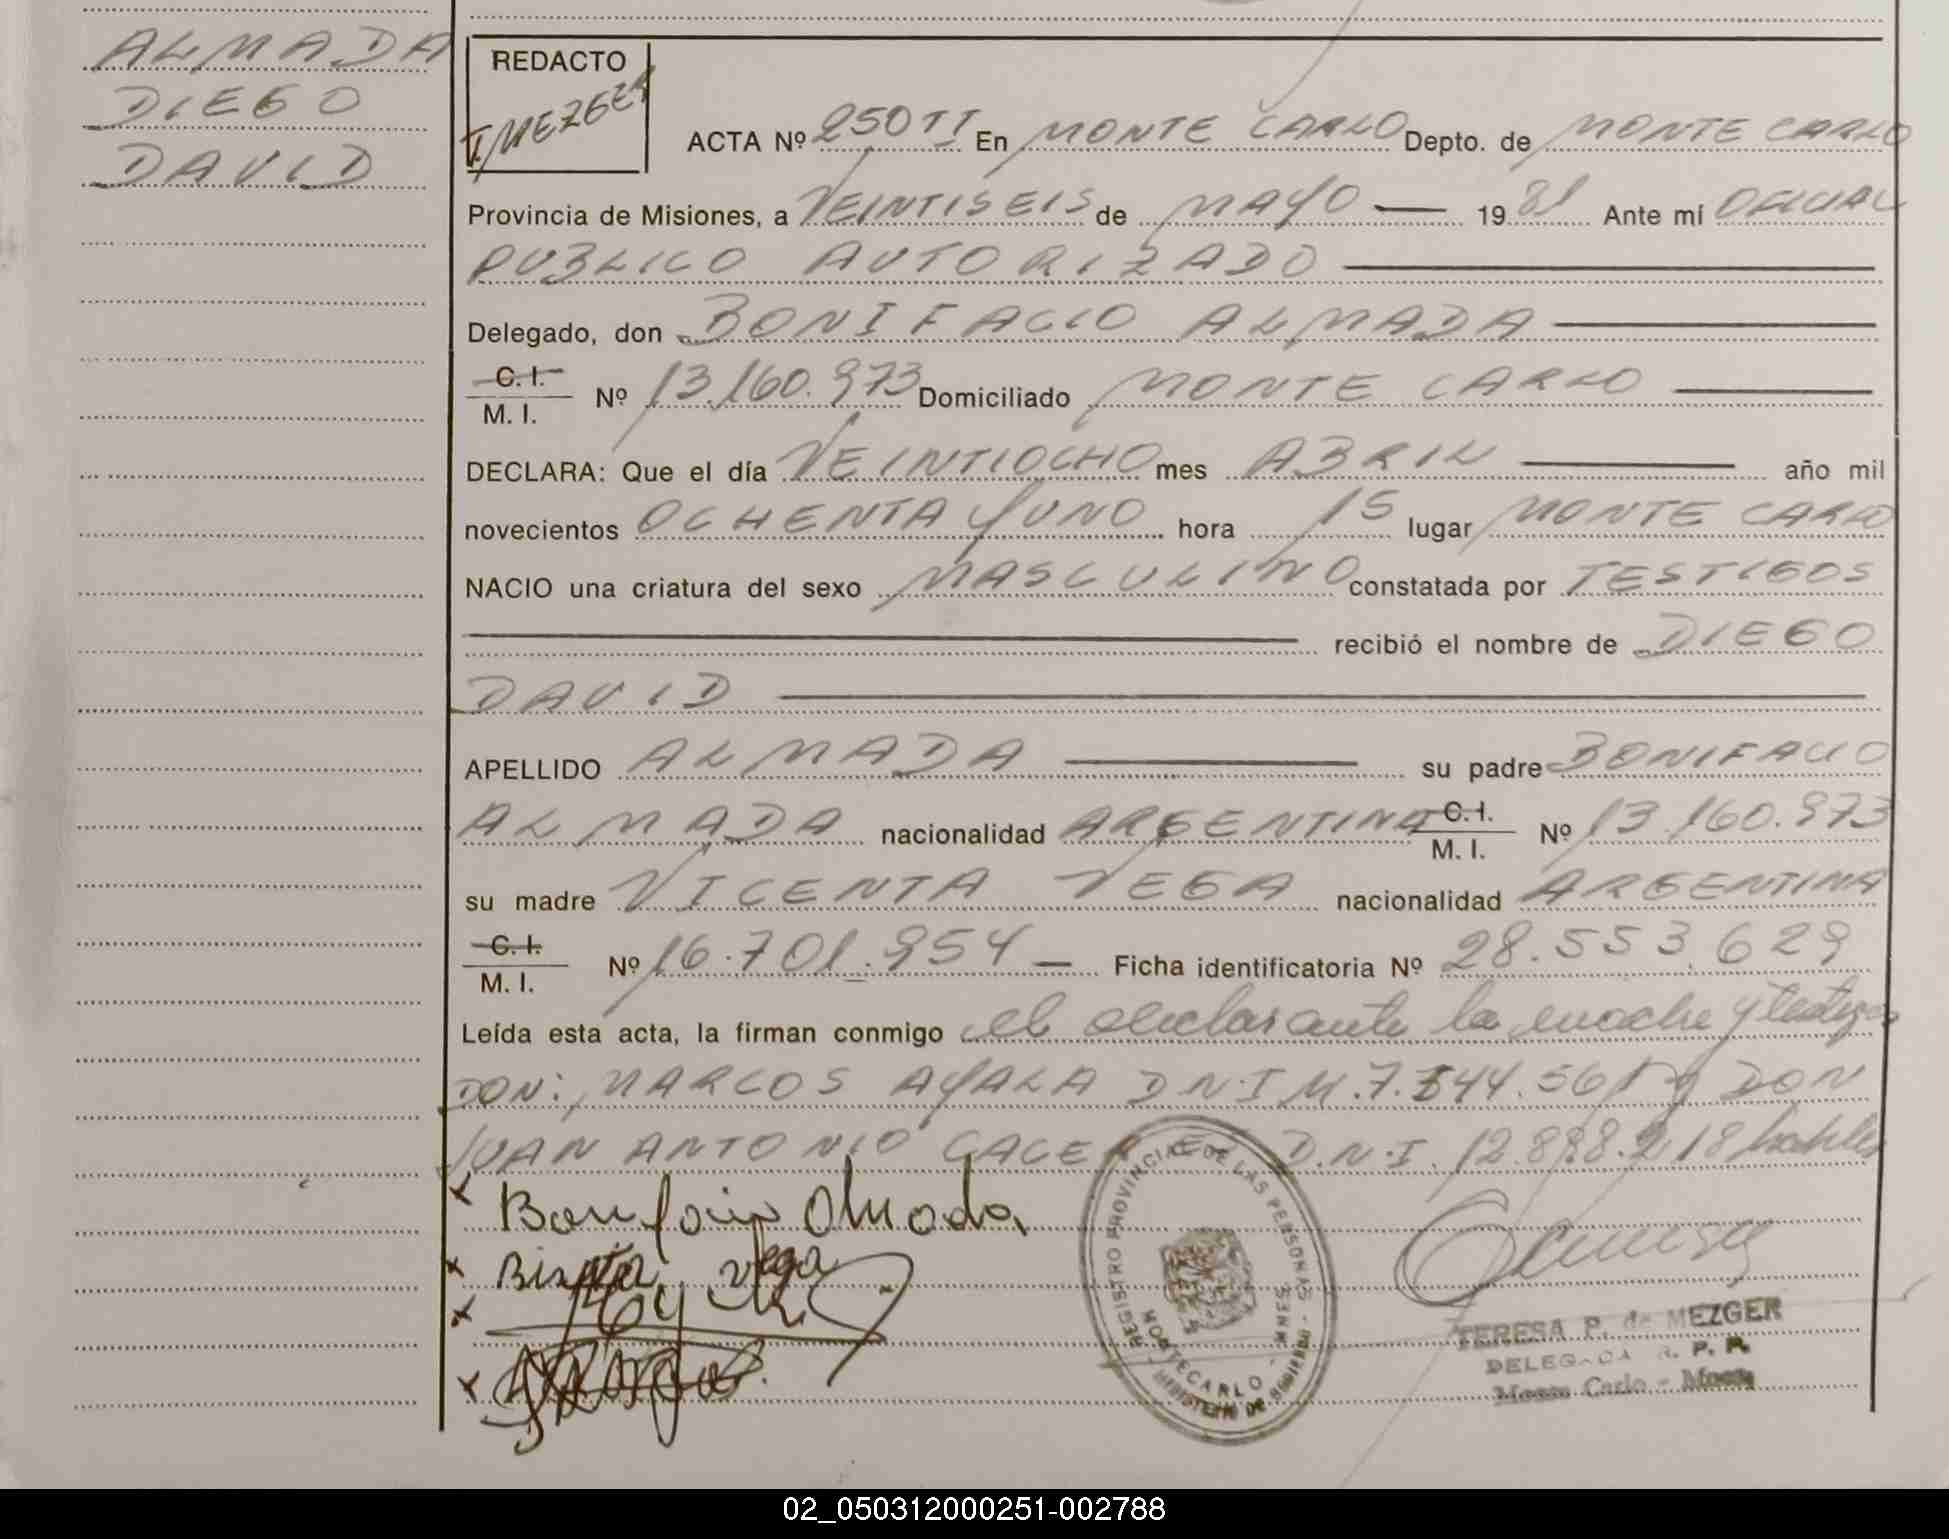 ALMADA
DIEGO
DAVID
REDACTO
T. MEZGER
ACTA Nº 250 TI En MONTE CARLO Depto. de MONTE CARLO
Provincia de Misiones, a VEINTISEIS de MAYO 1981 Ante mí OFICIAL
PUBLICO AUTORIZADO
Delegado, don BONIFACIO ALMADA
C. I. / M. I. Nº 13.160.973 Domiciliado MONTE CARLO
DECLARA: Que el día VEINTIOCHO mes ABRIL año mil
novecientos OCHENTA Y UNO hora 15 lugar MONTE CARLO
NACIO una criatura del sexo MASCULINO constatada por TESTIGOS
recibió el nombre de DIEGO
DAVID
APELLIDO ALMADA su padre BONIFACIO
ALMADA nacionalidad ARGENTINA C. I. / M. I. Nº 13.160.973
su madre VICENTA VEGA nacionalidad ARGENTINA
C. I. / M. I. Nº 16.701.954 Ficha identificatoria Nº 28.553.629
Leída esta acta, la firman conmigo el declarante la madre y testigos
DON: MARCOS AYALA D N I M. 7. Y DON
JUAN ANTONIO CACERES D.N.I. 12.898.218 habiles
Bonifacio Almada
Vega
REGISTRO PROVINCIAL DE LAS PERSONAS - MNES.
MONTECARLO
MINISTERIO DE GOBIERNO
TERESA P. de MEZGER
DELEGADA R. P. P.
Monte Carlo - Mnes
02_050312000251-002788